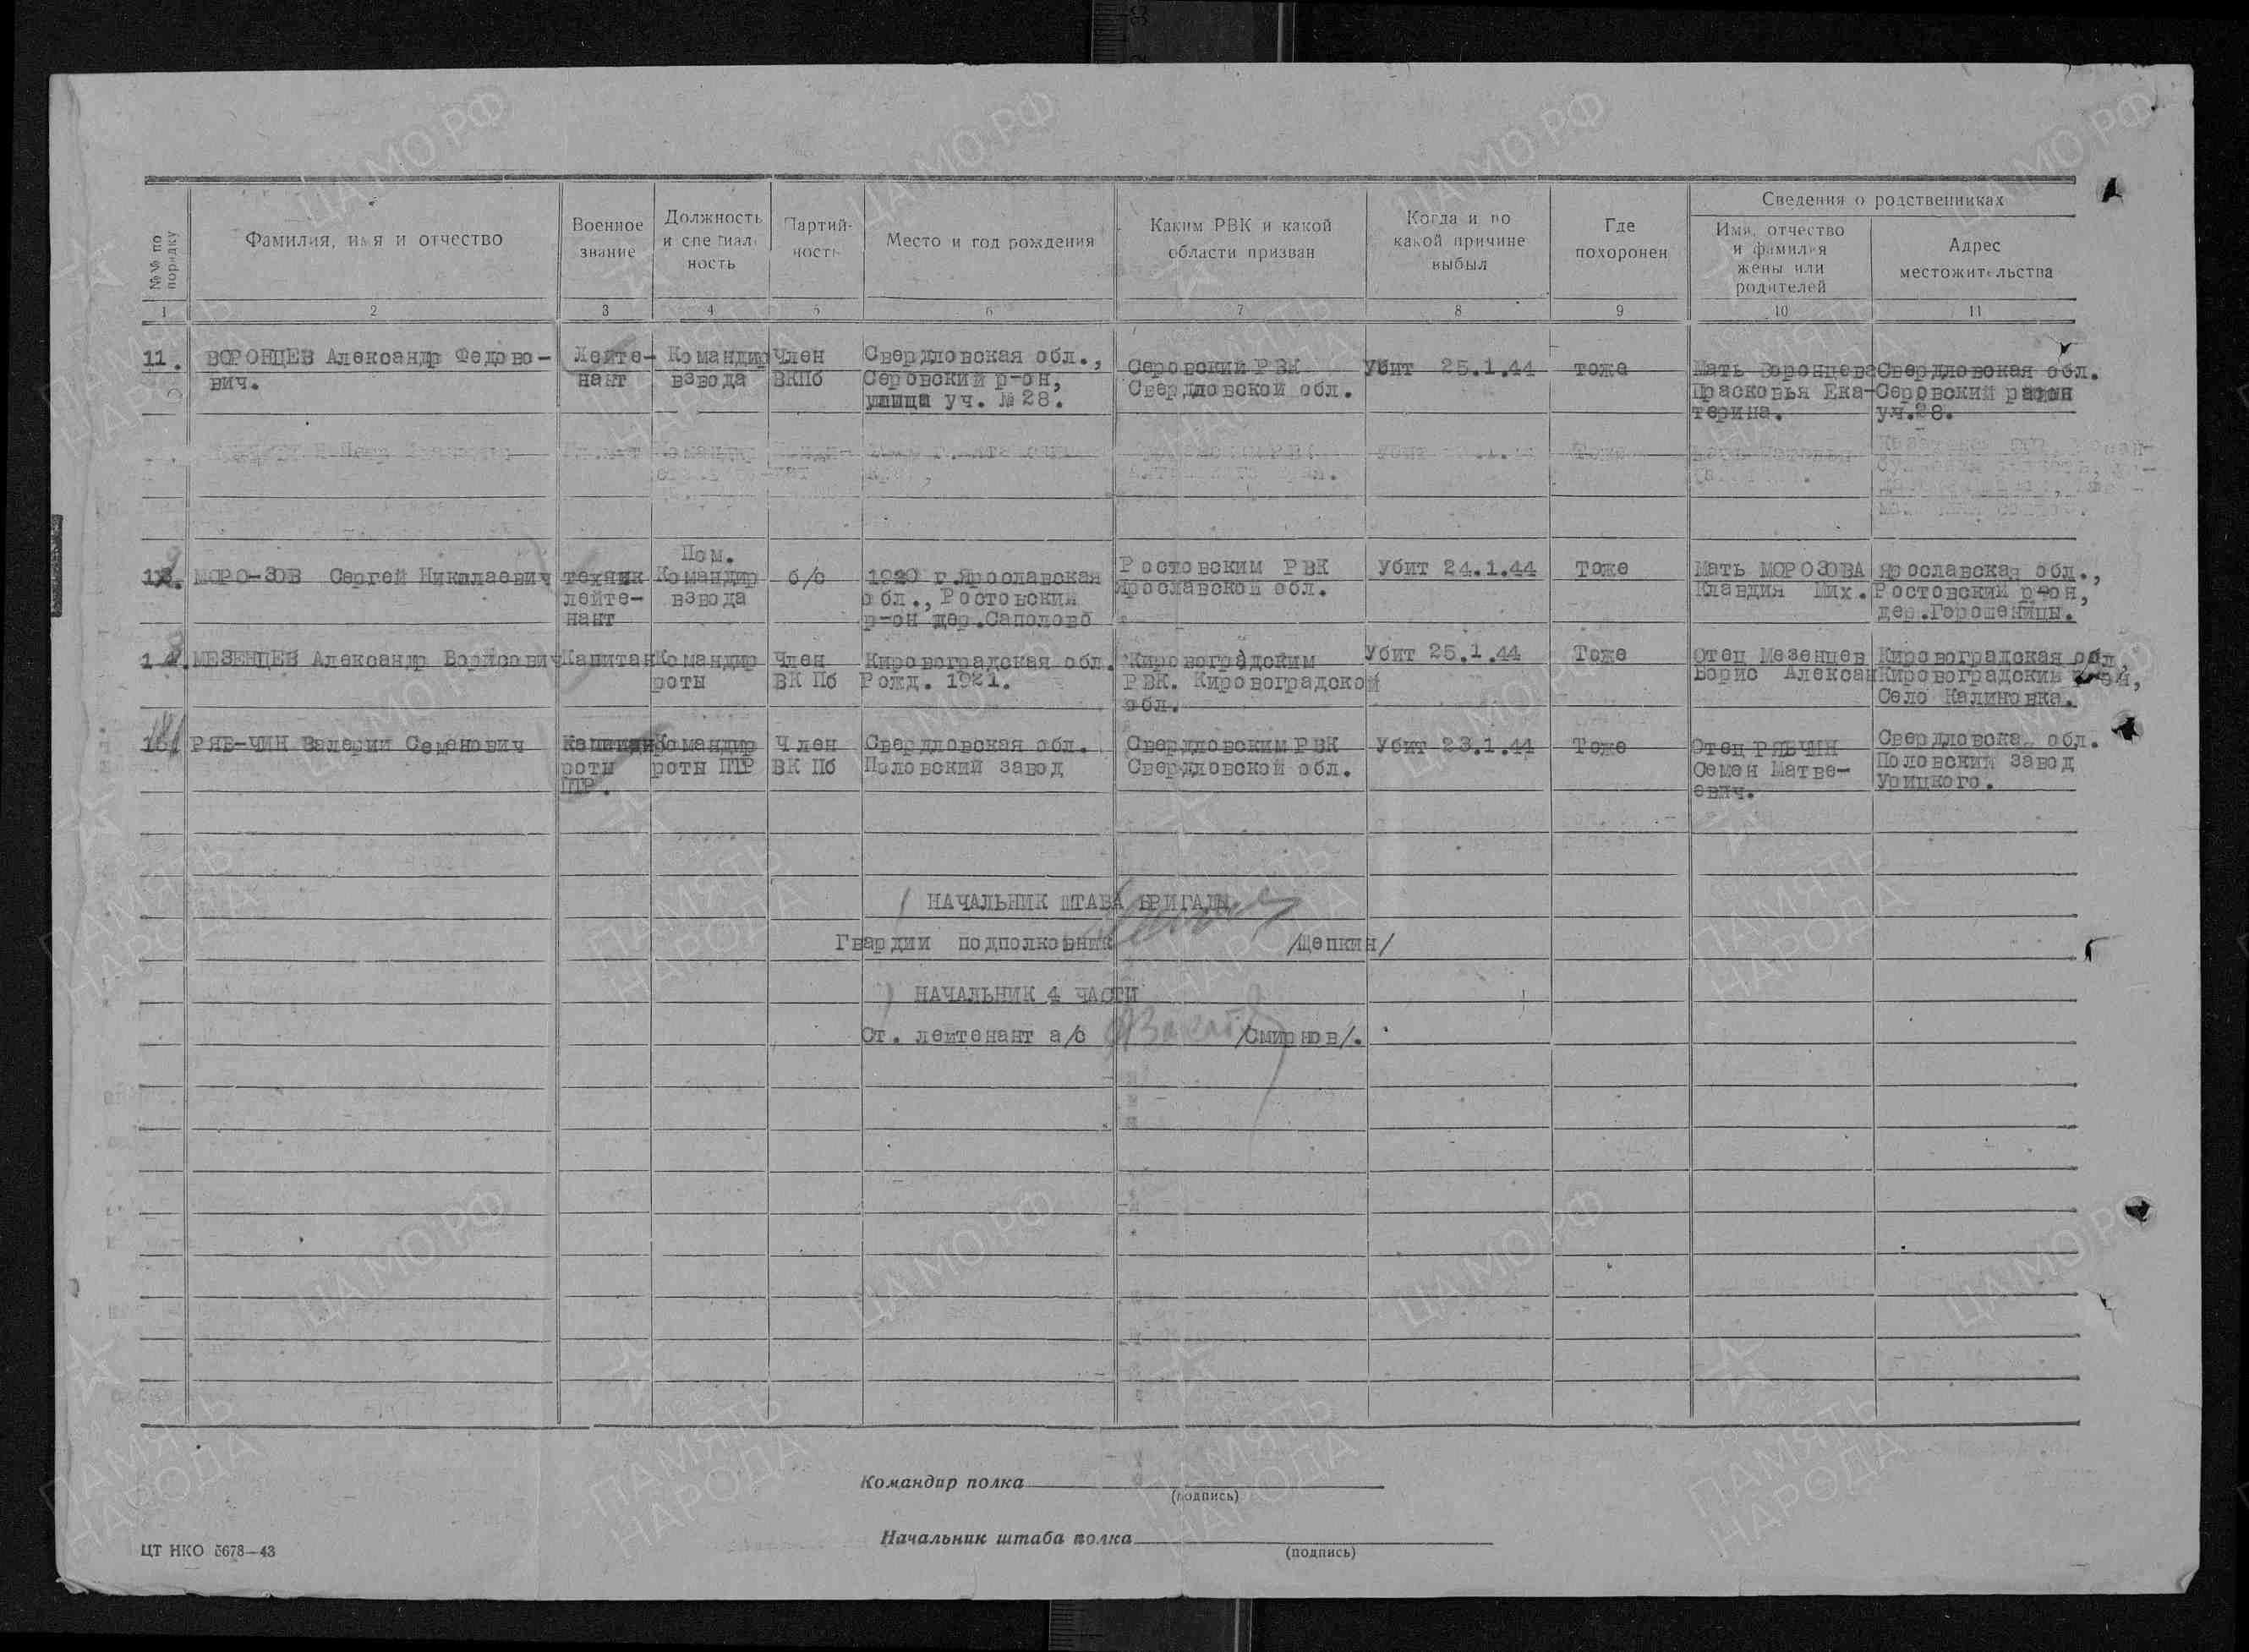 Сведения о родственниках
№№ по порядку
Фамилия, имя и отчество
Военное звание
Должность и специальность
Партийность
Место и год рождения
Каким РВК и какой области призван
Когда и по какой причине выбыл
Где похоронен
Имя, отчество и фамилия жены или родителей
Адрес местожительства
1 2 3 4 5 6 7 8 9 10 11
11. ВОРОНЦЕВ Александр Федово-
вич.
Лейте-
нант
Командир
взвода
Член
ВКПб
Свердловская обл.,
Серовский р-он,
улица уч. №28.
Серовский РВК
Свердловской обл.
Убит 25.1.44
тоже
Мать Воронцева
Прасковья Ека-
терина.
Свердловская обл.
Серовский район
уч.28.
МОРО-ЗОВ Сергей Николаевич
техник
лейте-
нант
Пом.
Командир
взвода
б/п
1920 г.Ярославская
обл., Ростовский
р-он дер.Саполово
Ростовским РВК
Ярославской обл.
Убит 24.1.44
Тоже
Мать МОРОЗОВА
Клавдия Мих.
Ярославская обл.,
Ростовский р-он,
дер.Горошеницы.
МЕЗЕНЦЕВ Александр Борисович
Капитан
Командир
роты
Член
ВК Пб
Кировоградская обл.
Рожд. 1921.
Кировоградским
РВК. Кировоградской
обл.
Убит 25.1.44
Тоже
Отец Мезенцев
Борис Алексан
Кировоградская обл,
Кировоградским р-он,
Село Калиновка.
РЯБ-ЧИН Валерий Семенович
Капитан
роты
ПТР.
Командир
роты ПТР
Член
ВК Пб
Свердловская обл.
Половский завод
Свердловским РВК
Свердловской обл.
Убит 23.1.44
Тоже
Отец РЯБЧИН
Семен Матве-
евич.
Свердловска обл.
Половский завод
Урицкого.
НАЧАЛЬНИК ШТАБА БРИГАДЫ
Гвардии подполковник /Щепкин/
НАЧАЛЬНИК 4 ЧАСТИ
Ст. лейтенант а/с /Смирнов/.
Командир полка
(подпись)
Начальник штаба полка
(подпись)
ЦТ НКО 5678—43